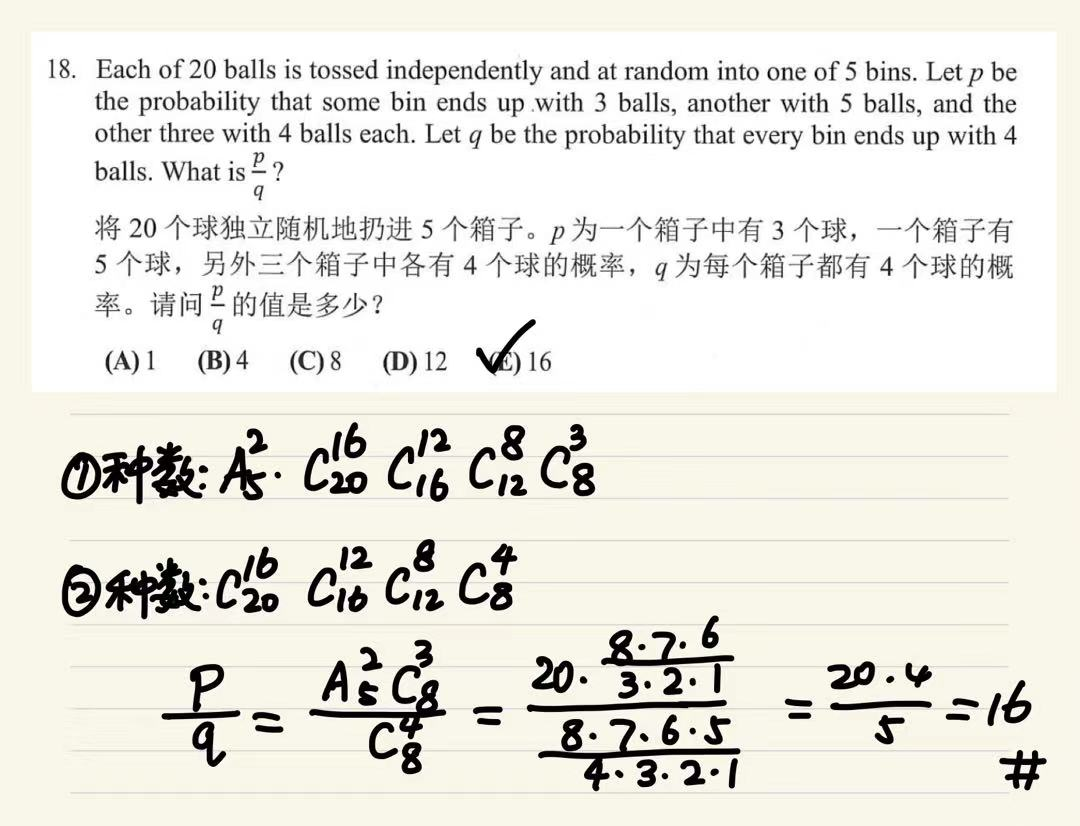 18. Each of 20 balls is tossed independently and at random into one of 5 bins. Let p be
the probability that some bin ends up with 3 balls, another with 5 balls, and the
other three with 4 balls each. Let q be the probability that every bin ends up with 4
balls. What is p/q ?
将 20 个球独立随机地扔进 5 个箱子。p 为一个箱子中有 3 个球，一个箱子有
5 个球，另外三个箱子中各有 4 个球的概率，q 为每个箱子都有 4 个球的概
率。请问 p/q 的值是多少？
(A) 1 (B) 4 (C) 8 (D) 12 ✓(E) 16
①种数: A₅²· C₂₀¹⁶ C₁₆¹² C₁₂⁸ C₈³
②种数: C₂₀¹⁶ C₁₆¹² C₁₂⁸ C₈⁴
P/q = A₅² C₈³ / C₈⁴ = (20· (8·7·6)/(3·2·1)) / ((8·7·6·5)/(4·3·2·1)) = 20·4/5 = 16
#